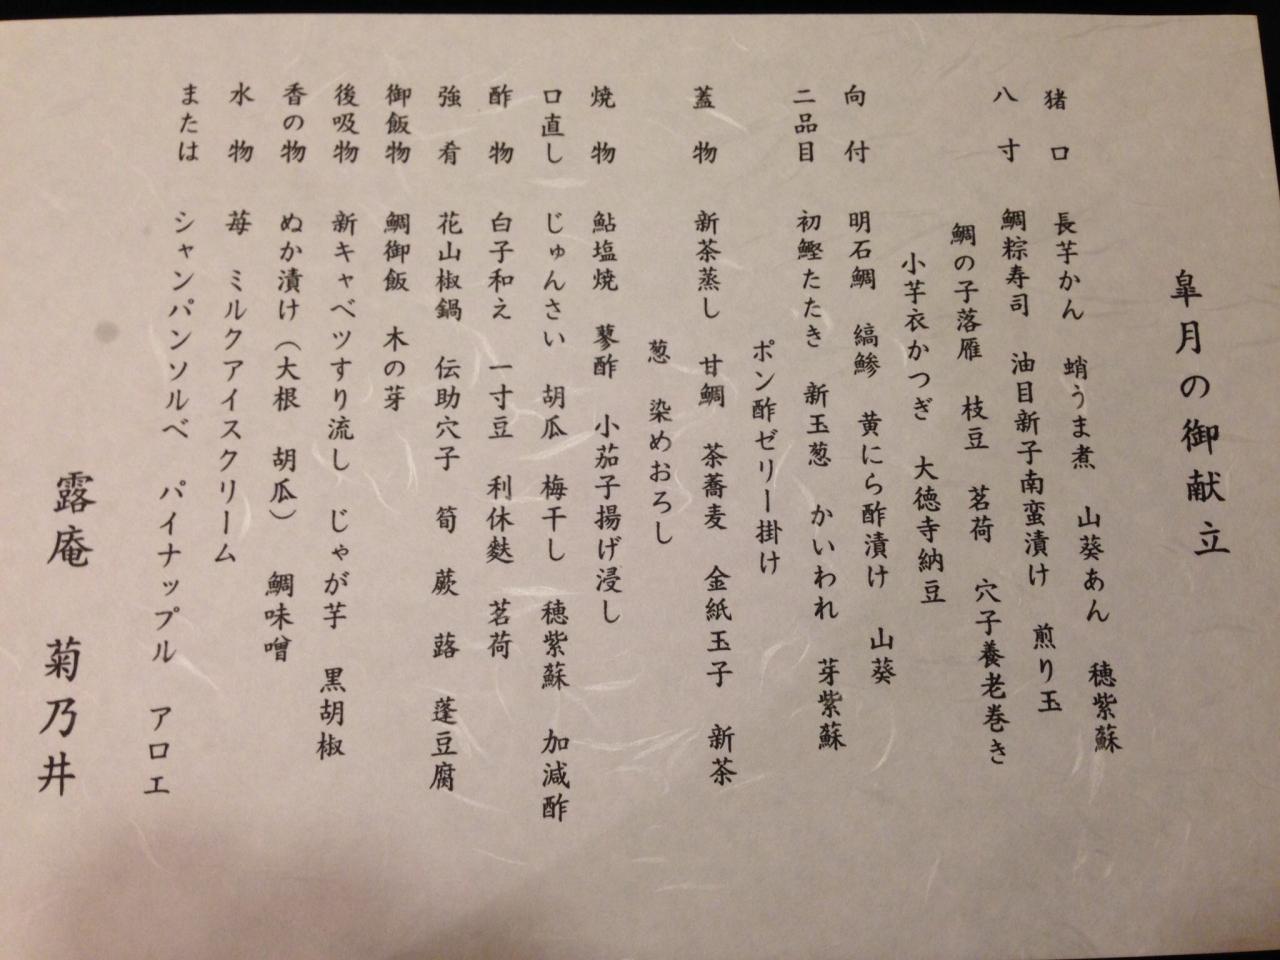 皐月の御献立
猪口 長芋かん 蛸うま煮 山葵あん 穂紫蘇
八寸 鯛粽寿司 油目新子南蛮漬け 煎り玉
鯛の子落雁 枝豆 茗荷 穴子養老巻き
小芋衣かつぎ 大徳寺納豆
向付 明石鯛 縞鯵 黄にら酢漬け 山葵
二品目 初鰹たたき 新玉葱 かいわれ 芽紫蘇
ポン酢ゼリー掛け
蓋物 新茶蒸し 甘鯛 茶蕎麦 金紙玉子 新茶
葱 染めおろし
焼物 鮎塩焼 蓼酢 小茄子揚げ浸し
口直し じゅんさい 胡瓜 梅干し 穂紫蘇 加減酢
酢物 白子和え 一寸豆 利休麩 茗荷
強肴 花山椒鍋 伝助穴子 筍 蕨 蕗 蓬豆腐
御飯物 鯛御飯 木の芽
後吸物 新キャベツすり流し じゃが芋 黒胡椒
香の物 ぬか漬け（大根 胡瓜） 鯛味噌
水物 苺 ミルクアイスクリーム
または シャンパンソルベ パイナップル アロエ
露庵 菊乃井